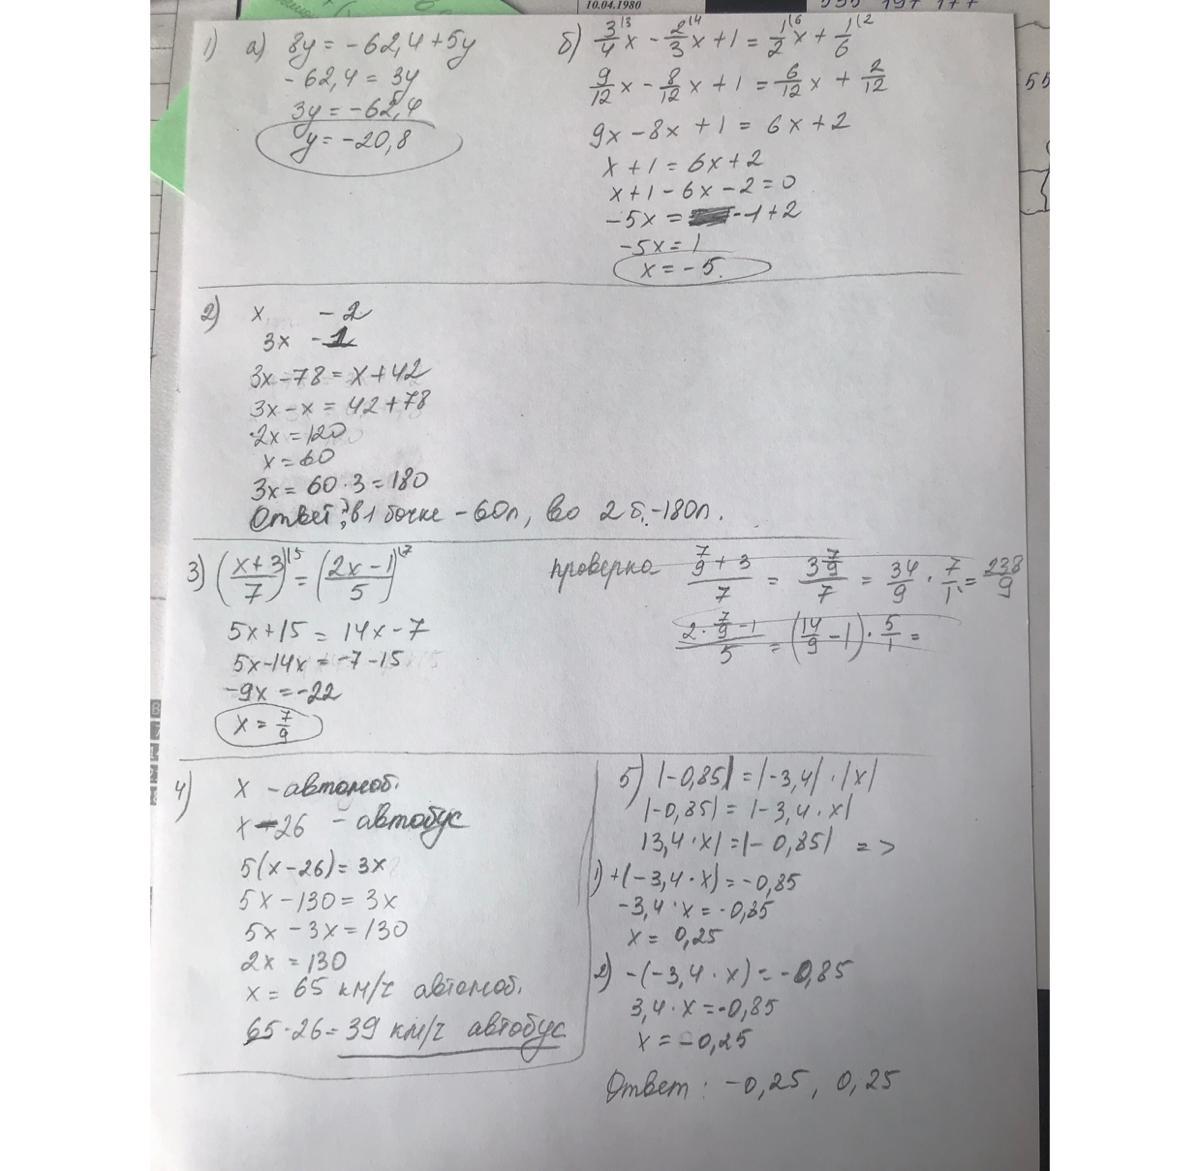 10.04.1980
1) а) 8y = -62,4 + 5y
-62,4 = 3y
3y = -62,4
y = -20,8
б) 3/4 x - 2/3 x + 1 = 1/2 x + 1/6
9/12 x - 8/12 x + 1 = 6/12 x + 2/12
9x - 8x + 1 = 6x + 2
x + 1 = 6x + 2
x + 1 - 6x - 2 = 0
-5x = -1 + 2
-5x = 1
x = -5.
2) x - 2
3x - 1
3x - 78 = x + 42
3x - x = 42 + 78
2x = 120
x = 60
3x = 60 · 3 = 180
Ответ: в 1 бочке - 60л, во 2 б. - 180л.
3) ((x+3)/7)^(5 = ((2x-1)/5)^(7
5x + 15 = 14x - 7
5x - 14x = -7 - 15
-9x = -22
x = 7/9
проверка (7/9 + 3)/7 = (3 7/9)/7 = 34/9 · 7/1 = 238/9
(2 · 7/9 - 1)/5 = (14/9 - 1) · 5/1 =
4) x - автомоб.
x - 26 - автобус
5(x - 26) = 3x
5x - 130 = 3x
5x - 3x = 130
2x = 130
x = 65 км/ч автомоб.
65 - 26 = 39 км/ч автобус
5) |-0,85| = |-3,4| · |x|
|-0,85| = |-3,4 · x|
|3,4 · x| = |-0,85| =>
1) +(-3,4 · x) = -0,85
-3,4 · x = -0,85
x = 0,25
2) -(-3,4 · x) = -0,85
3,4 · x = -0,85
x = -0,25
Ответ: -0,25, 0,25